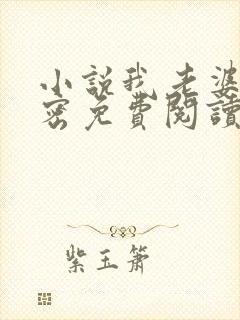 小説我老婆
密免費閱讀
紫玉簫